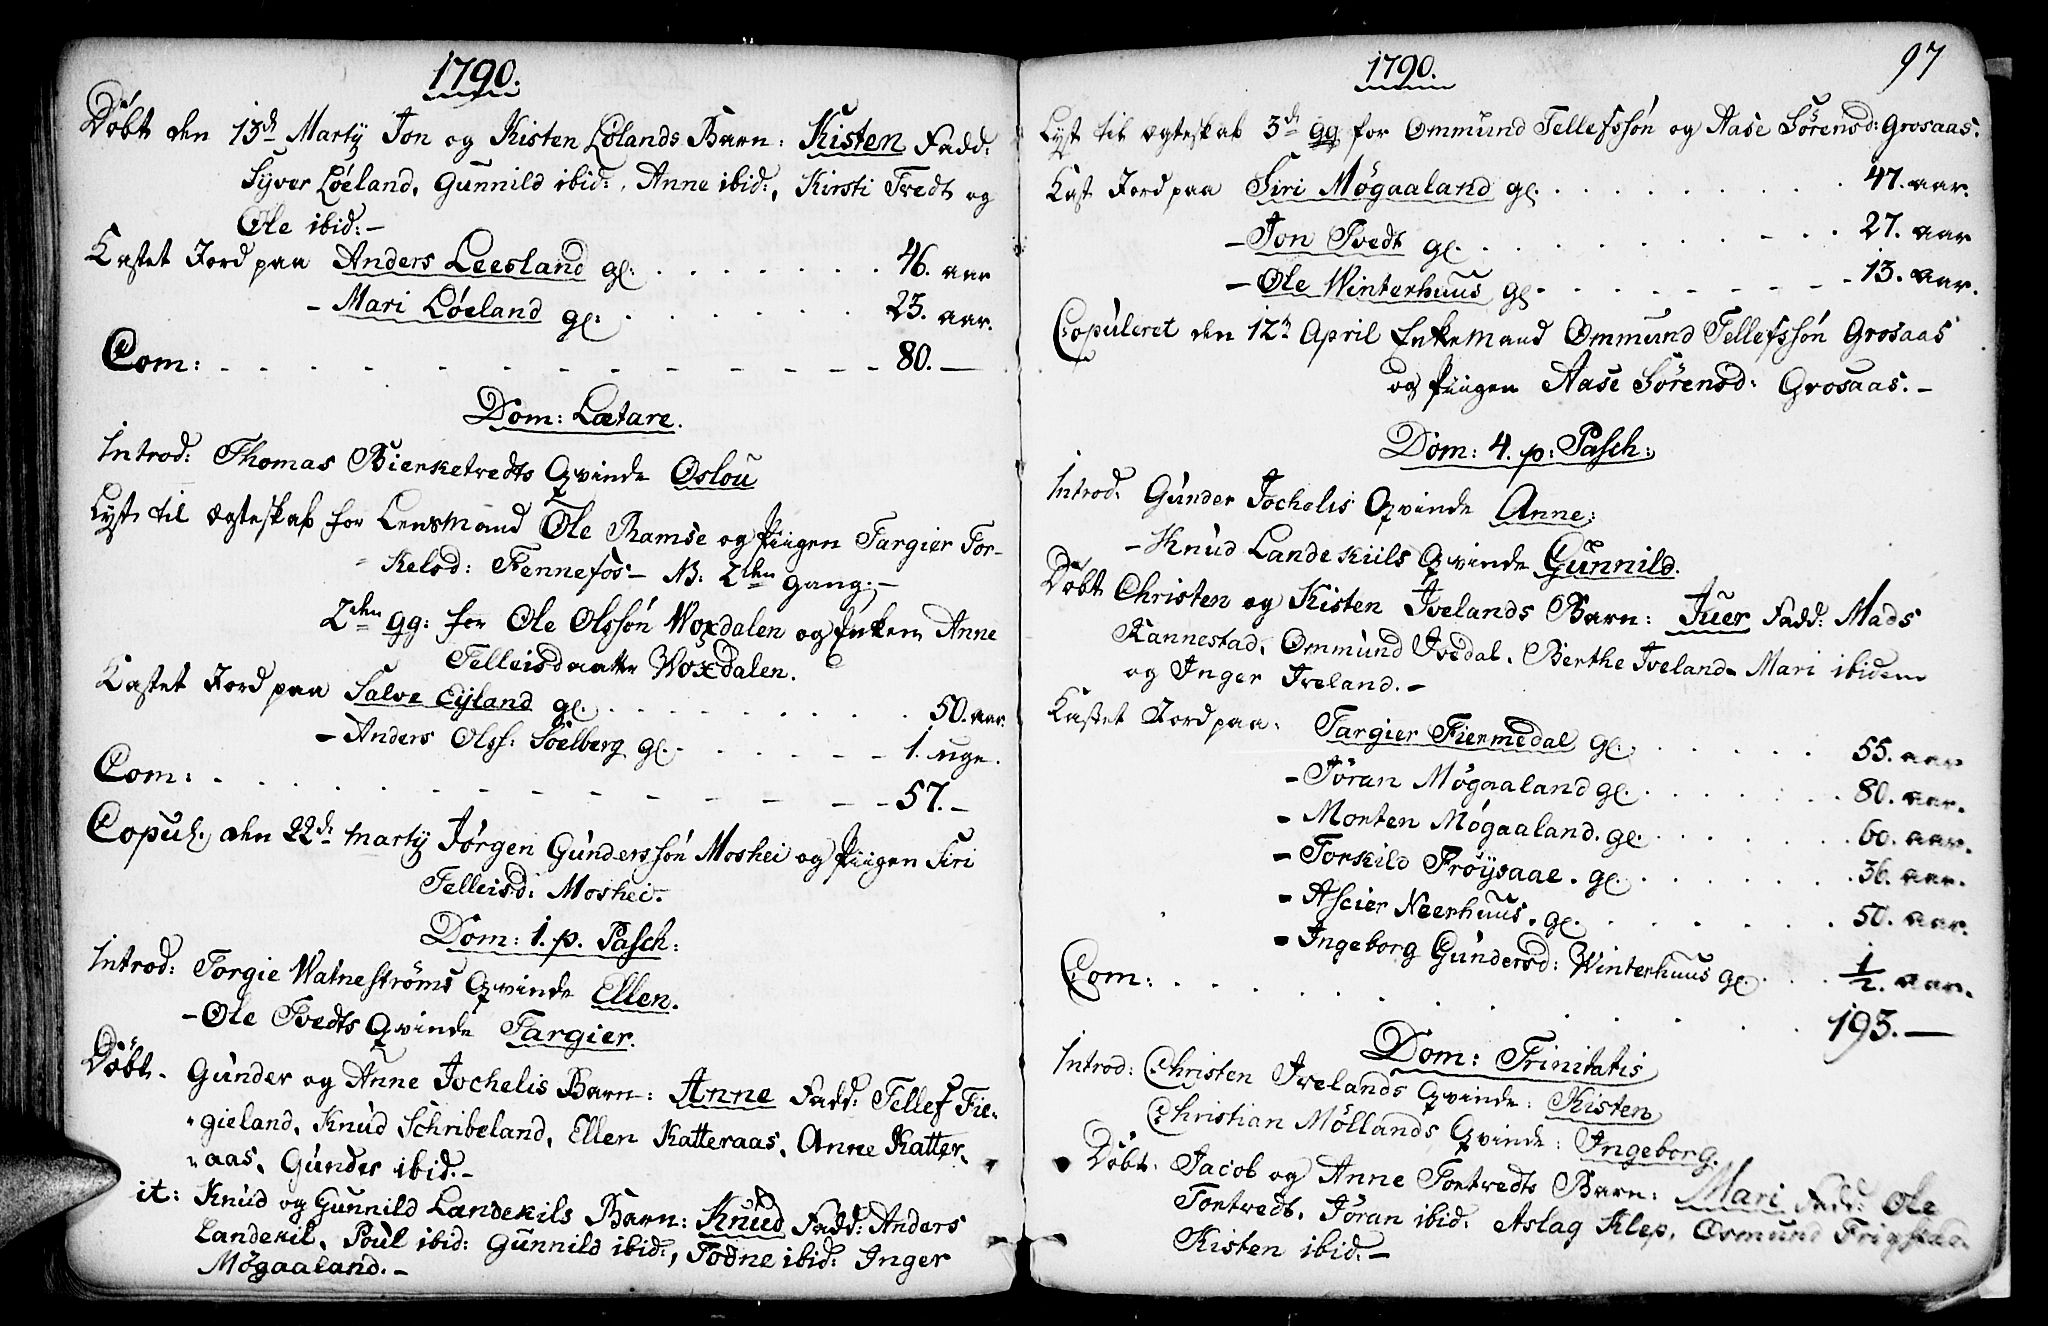 1790.
Døbt den 13de Martÿ Jon og Kisten Lølands Barn: Kisten Fadd:
Syver Løeland, Gunnild ibid:, Anne ibid:, Kirsti Tvedt og
Ole ibid:-
Kastet Jord paa Anders Leesland gl: . . . . . . . 46. aar
- Mari Løeland gl: . . . . . . 23. aar.
Com: - - - - - - - - - - - - 80. -
Dom: Lætare.
Introd: Thomas Bierketvedts Qvinde Oslou
Lyst til Ægteskab for Lensmand Ole Ramse og Piigen Targier Tor-
kelsd: Fennefos- NB: 2den Gang. -
2den gg: for Ole Olssøn Woxdalen og Enken Anne
Telleisdaatter Woxdalen.
Kastet Jord paa Salve Eyland gl. . . . . . . . . . 50. aar.
- Anders Olss: Soelberg gl. . . . . . . 1. uge.
Com: . - - - - - - - - - - - 57. -
Copul. den 22de Martÿ Jørgen Gunderssøn Moshei og Piigen Siri
Telleisd: Moshei-
Dom: 1. p. Pasch:
Introd: Torgie Watnestrøms Qvinde Ellen.
- Ole Tvedts Qvinde Targier.
Døbt. Gunder og Anne Jochelis Barn: Anne Fadd: Tellef Fie-
gieland, Knud Schribeland, Ellen Katteraas, Anne Katter-
aas, Gunder ibid.-
it: Knud og Gunnild Landekils Barn: Knud Fadd: Anders
Landekil, Poul ibid: Gunnild ibid:, Todne ibid: Inger
Møgaaland.-
1790.
97
Lyst til Ægteskab 3de gg for Ommund Tellefssøn og Aase Sørensd: Grosaas.
Kast Jord paa Siri Møgaaland gl. . . . . . . . . . 47. aar.
- Jon Tvedt gl. . . . . . . . . 27. aar
- Ole Winterhuus gl - . . . . . . - 13. aar.
Copuleret den 12te April Enkemand Ommund Tellefssøn Grosaas
og Piigen Aase Sørensd: Grosaas. -
Dom: 4. p: Pasch:
Introd: Gunder Jochelis Qvinde Anne:
- Knud Landekiils Qvinde Gunnild.
Døbt Christen og Kisten Ivelands Barn: Iuer Fadd: Mads
Kannestad, Ommund Ivedal, Berthe Iveland- Mari ibidem
og Inger Iveland.-
Kastet Jord paa: Targier Fiermedal gl. . . . . . . 55. aar
- Jøran Møgaaland gl. . . . . . . 80. aar.
- Morten Møgaaland. gl. . . . . . . 60. aar.
- Torkild Frøysaae. gl. . . . . . . 36. aar.
- Ascier Neerhuus. gl. . . . . . . 50. aar.
- Ingeborg Gundersd: Winterhuus gl. . . . 1/2. aar.
Com: . . . . . . . . . . . . 193. -
Dom: Trinitatis
Introd: Christen Ivelands Qvinde: Kisten
Christian Möllands Qvinde: Ingeborg.
Døbt. Jacob og Anne Tortvedts Barn: Mari Fadd: Ole
Tortvedt, Jøran ibid: Aslag Klep, Osmund Frigstad
Kisten ibid.-